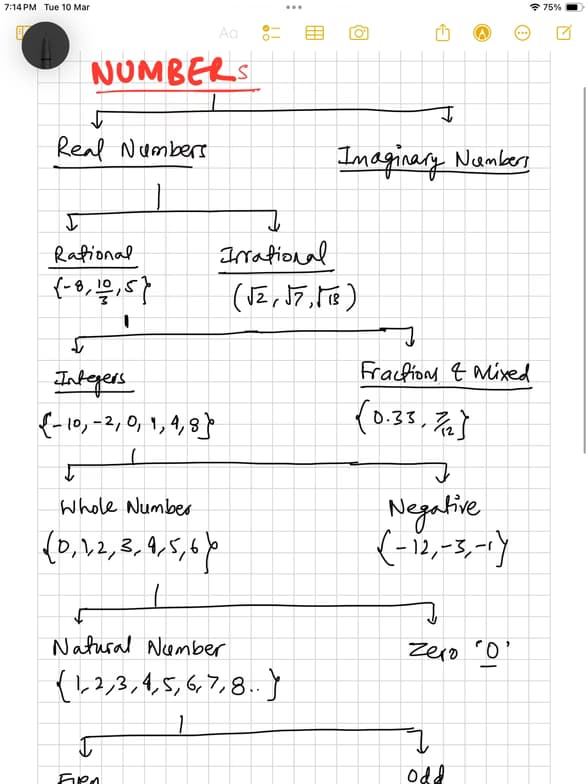 7:14 PM Tue 10 Mar
75%
Aa
NUMBERS
Real Numbers
Imaginary Numbers
Rational
Irrational
{-8, 10/3, 5}
(√2, √7, √18)
Integers
Fractions & Mixed
{-10, -2, 0, 1, 4, 8}
{0.33, 7/12}
Whole Number
Negative
{0, 1, 2, 3, 4, 5, 6}
{-12, -3, -1}
Natural Number
Zero '0'
{1, 2, 3, 4, 5, 6, 7, 8..}
Even
Odd